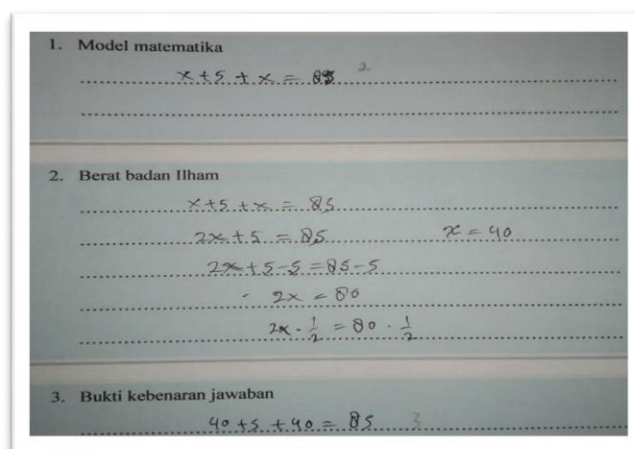 1. Model matematika
x + 5 + x = 85 2
2. Berat badan Ilham
x + 5 + x = 85
2x + 5 = 85 x = 40
2x + 5 - 5 = 85 - 5
2x = 80
2x · 1/2 = 80 · 1/2
3. Bukti kebenaran jawaban
40 + 5 + 40 = 85 3